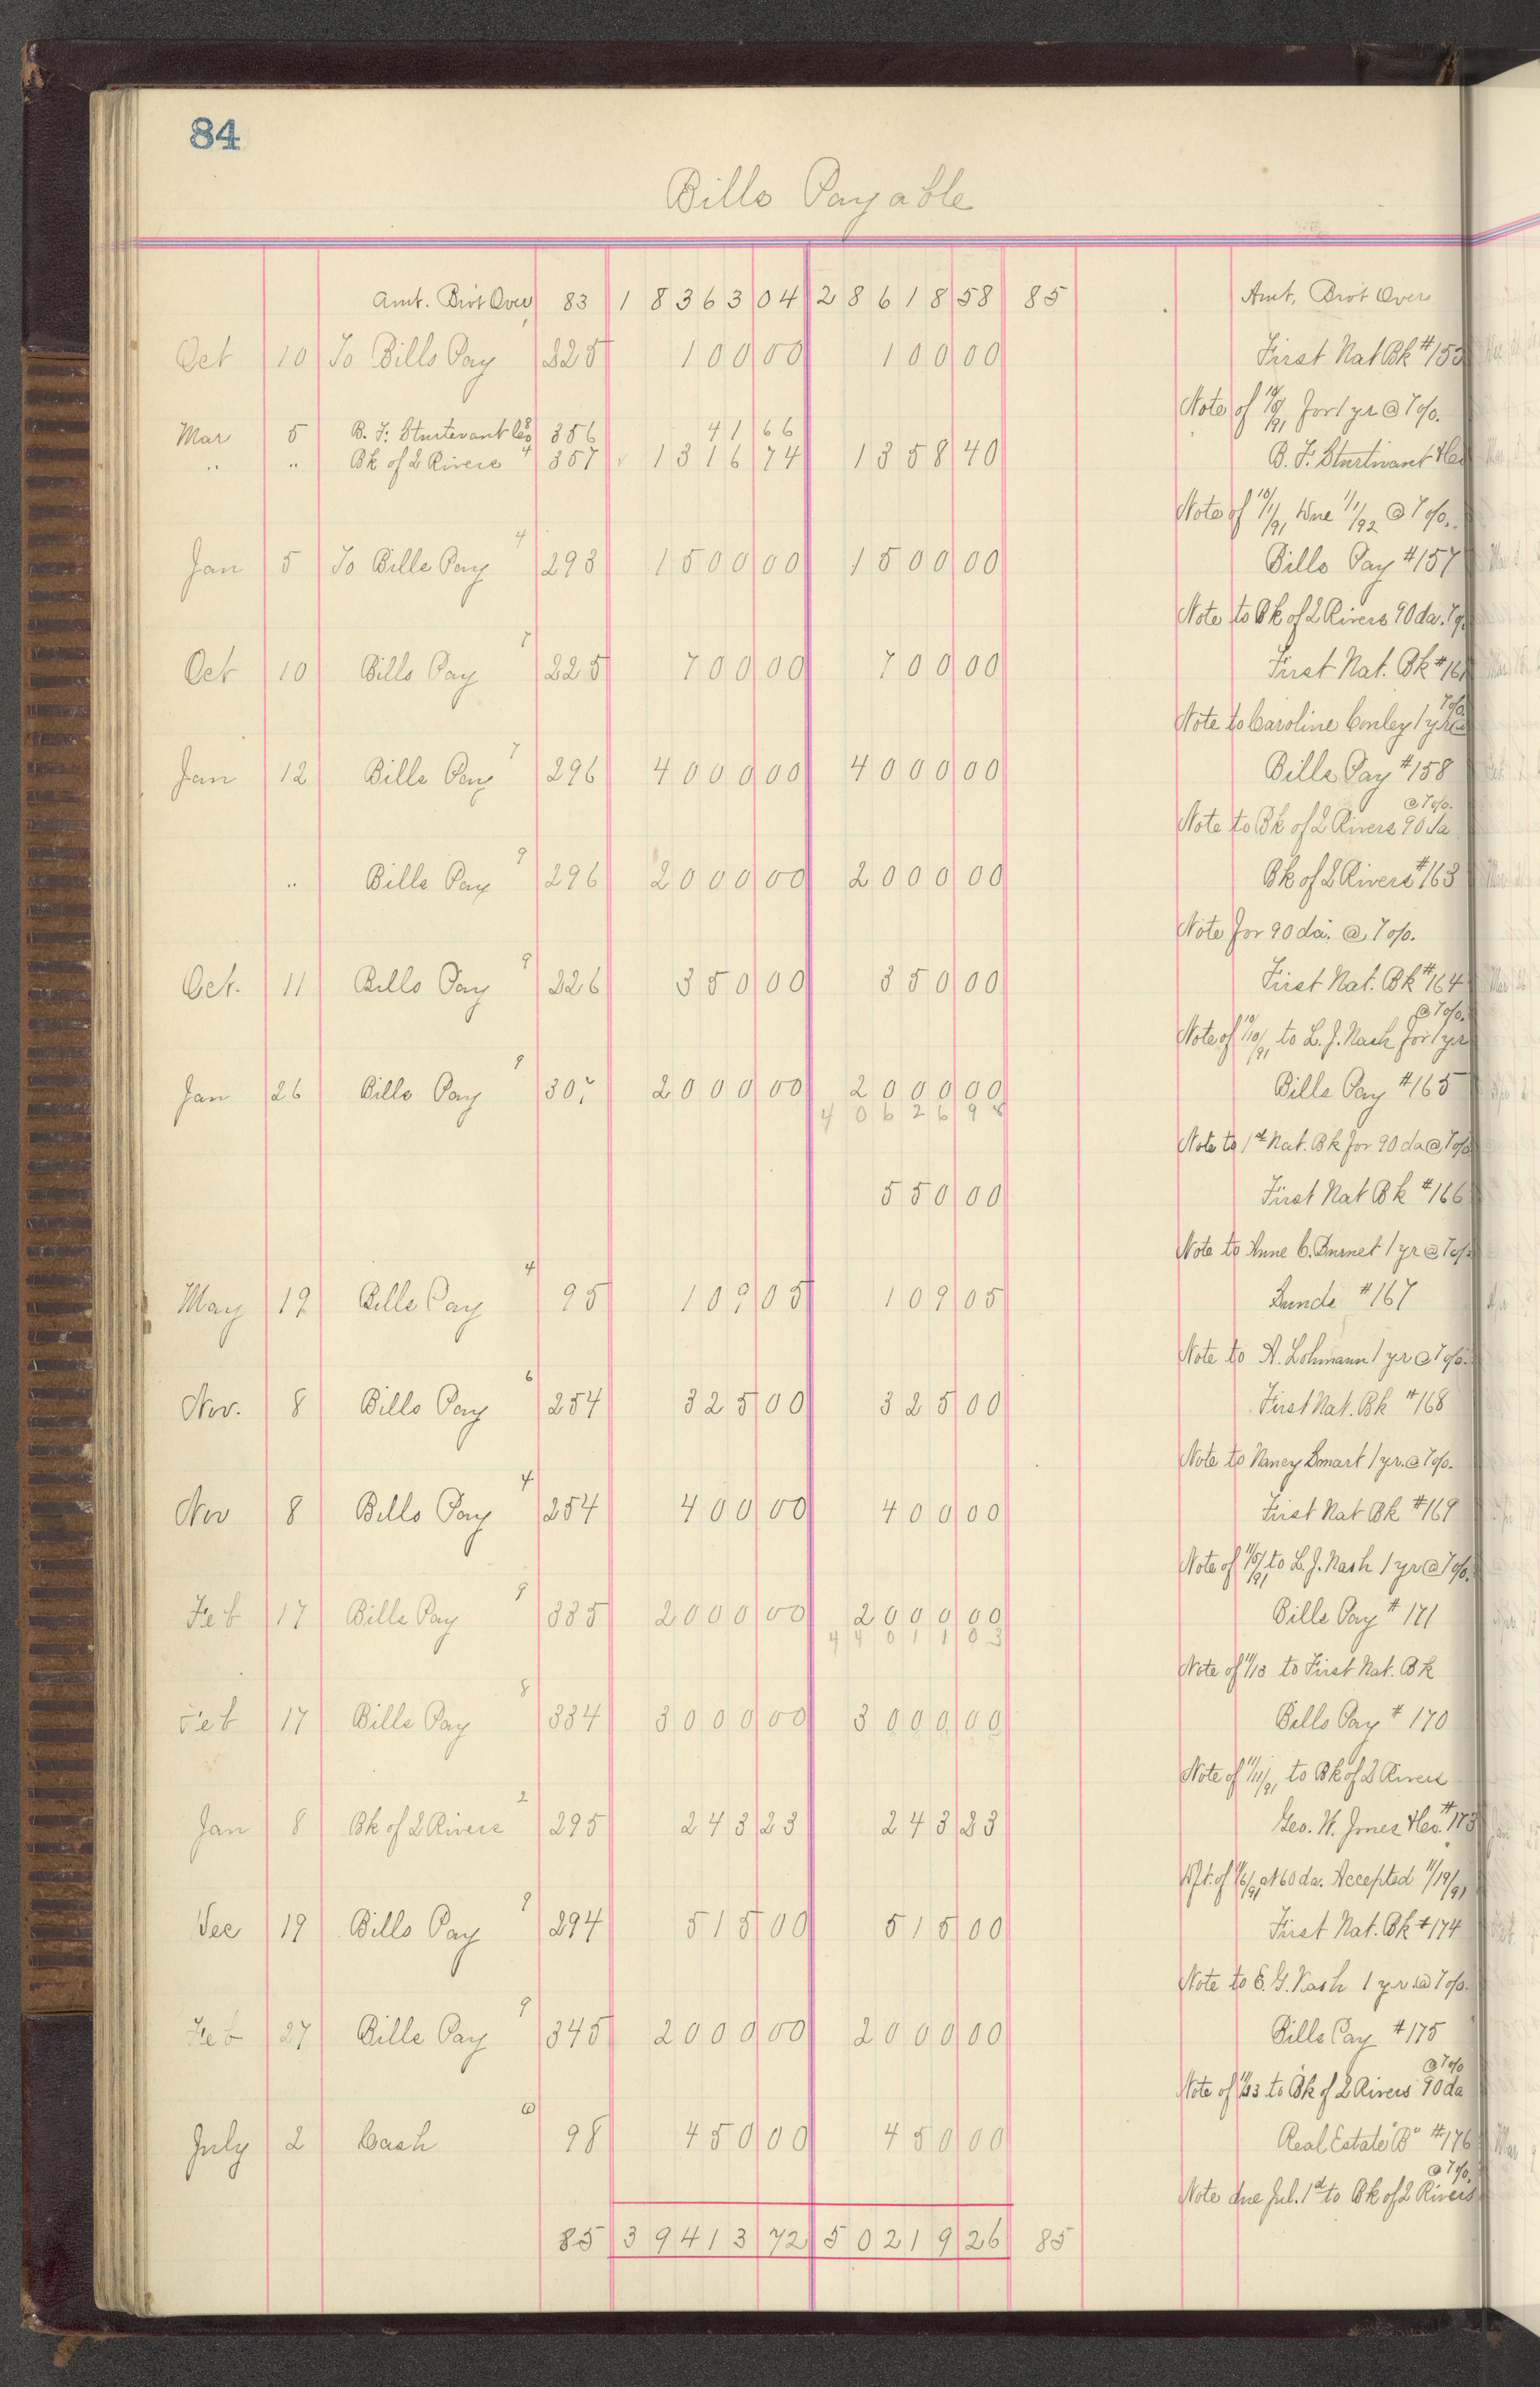 84
Bills Payable
Amt. Bro't Over 83 18363 04 28618 58 85 Amt. Bro't Over
Oct 10 To Bills Pay 225 100 00 100 00 First Nat Bk #153
Note of 10/8/91 for 1 yr @ 7%.
Mar 5 B. F. Sturtevant Co 8 356 41 66
" " Bk of 2 Rivers 4 357 1316 74 1358 40 B. F. Sturtivant & Co
Note of 10/1/91 Due 1/1/92 @ 7%.
Jan 5 To Bills Pay 4 293 1500 00 1500 00 Bills Pay #157
Note to Bk of 2 Rivers 90 da. 7%
Oct 10 Bills Pay 7 225 700 00 700 00 First Nat. Bk #161
Note to Caroline Conley 1 yr @ 7%
Jan 12 Bills Pay 7 296 4000 00 4000 00 Bills Pay #158
Note to Bk of 2 Rivers 90 da @ 7%.
" Bills Pay 9 296 2000 00 2000 00 Bk of 2 Rivers #163
Note for 90 da. @ 7%.
Oct. 11 Bills Pay 9 226 350 00 350 00 First Nat. Bk #164
Note of 10/10/91 to L. J. Nash for 1 yr @ 7%.
Jan 26 Bills Pay 9 307 2000 00 2000 00 Bills Pay #165
40626 98
Note to 1st Nat. Bk for 90 da @ 7%
550 00 First Nat Bk #166
Note to Anne C. Burnet 1 yr @ 7%
May 19 Bills Pay 4 95 109 05 109 05 Sunds #167
Note to A. Lohmann 1 yr @ 7%.
Nov. 8 Bills Pay 6 254 325 00 325 00 First Nat. Bk #168
Note to Nancy Smart 1 yr. @ 7%.
Nov 8 Bills Pay 4 254 400 00 400 00 First Nat Bk #169
Note of 11/5/91 to L. J. Nash 1 yr @ 7%.
Feb 17 Bills Pay 9 335 2000 00 2000 00 Bills Pay #171
44011 03
Note of 11/13 to First Nat. Bk
Feb 17 Bills Pay 8 334 3000 00 3000 00 Bills Pay #170
Note of 11/11/91 to Bk of 2 Rivers
Jan 8 Bk of 2 Rivers 2 295 243 23 243 23 Geo. W. Jones & Co. #173
Dft. of 11/6/91 at 60 da. Accepted 11/19/91
Dec 19 Bills Pay 9 294 515 00 515 00 First Nat. Bk #174
Note to E. G. Nash 1 yr @ 7%.
Feb 27 Bills Pay 9 345 2000 00 2000 00 Bills Pay #175
Note of 11/23 to Bk of 2 Rivers 90 da @ 7%
July 2 Cash 98 450 00 450 00 Real Estate "B" #176
Note due Jul. 1st to Bk of 2 Rivers @ 7%.
85 39413 72 50219 26 85